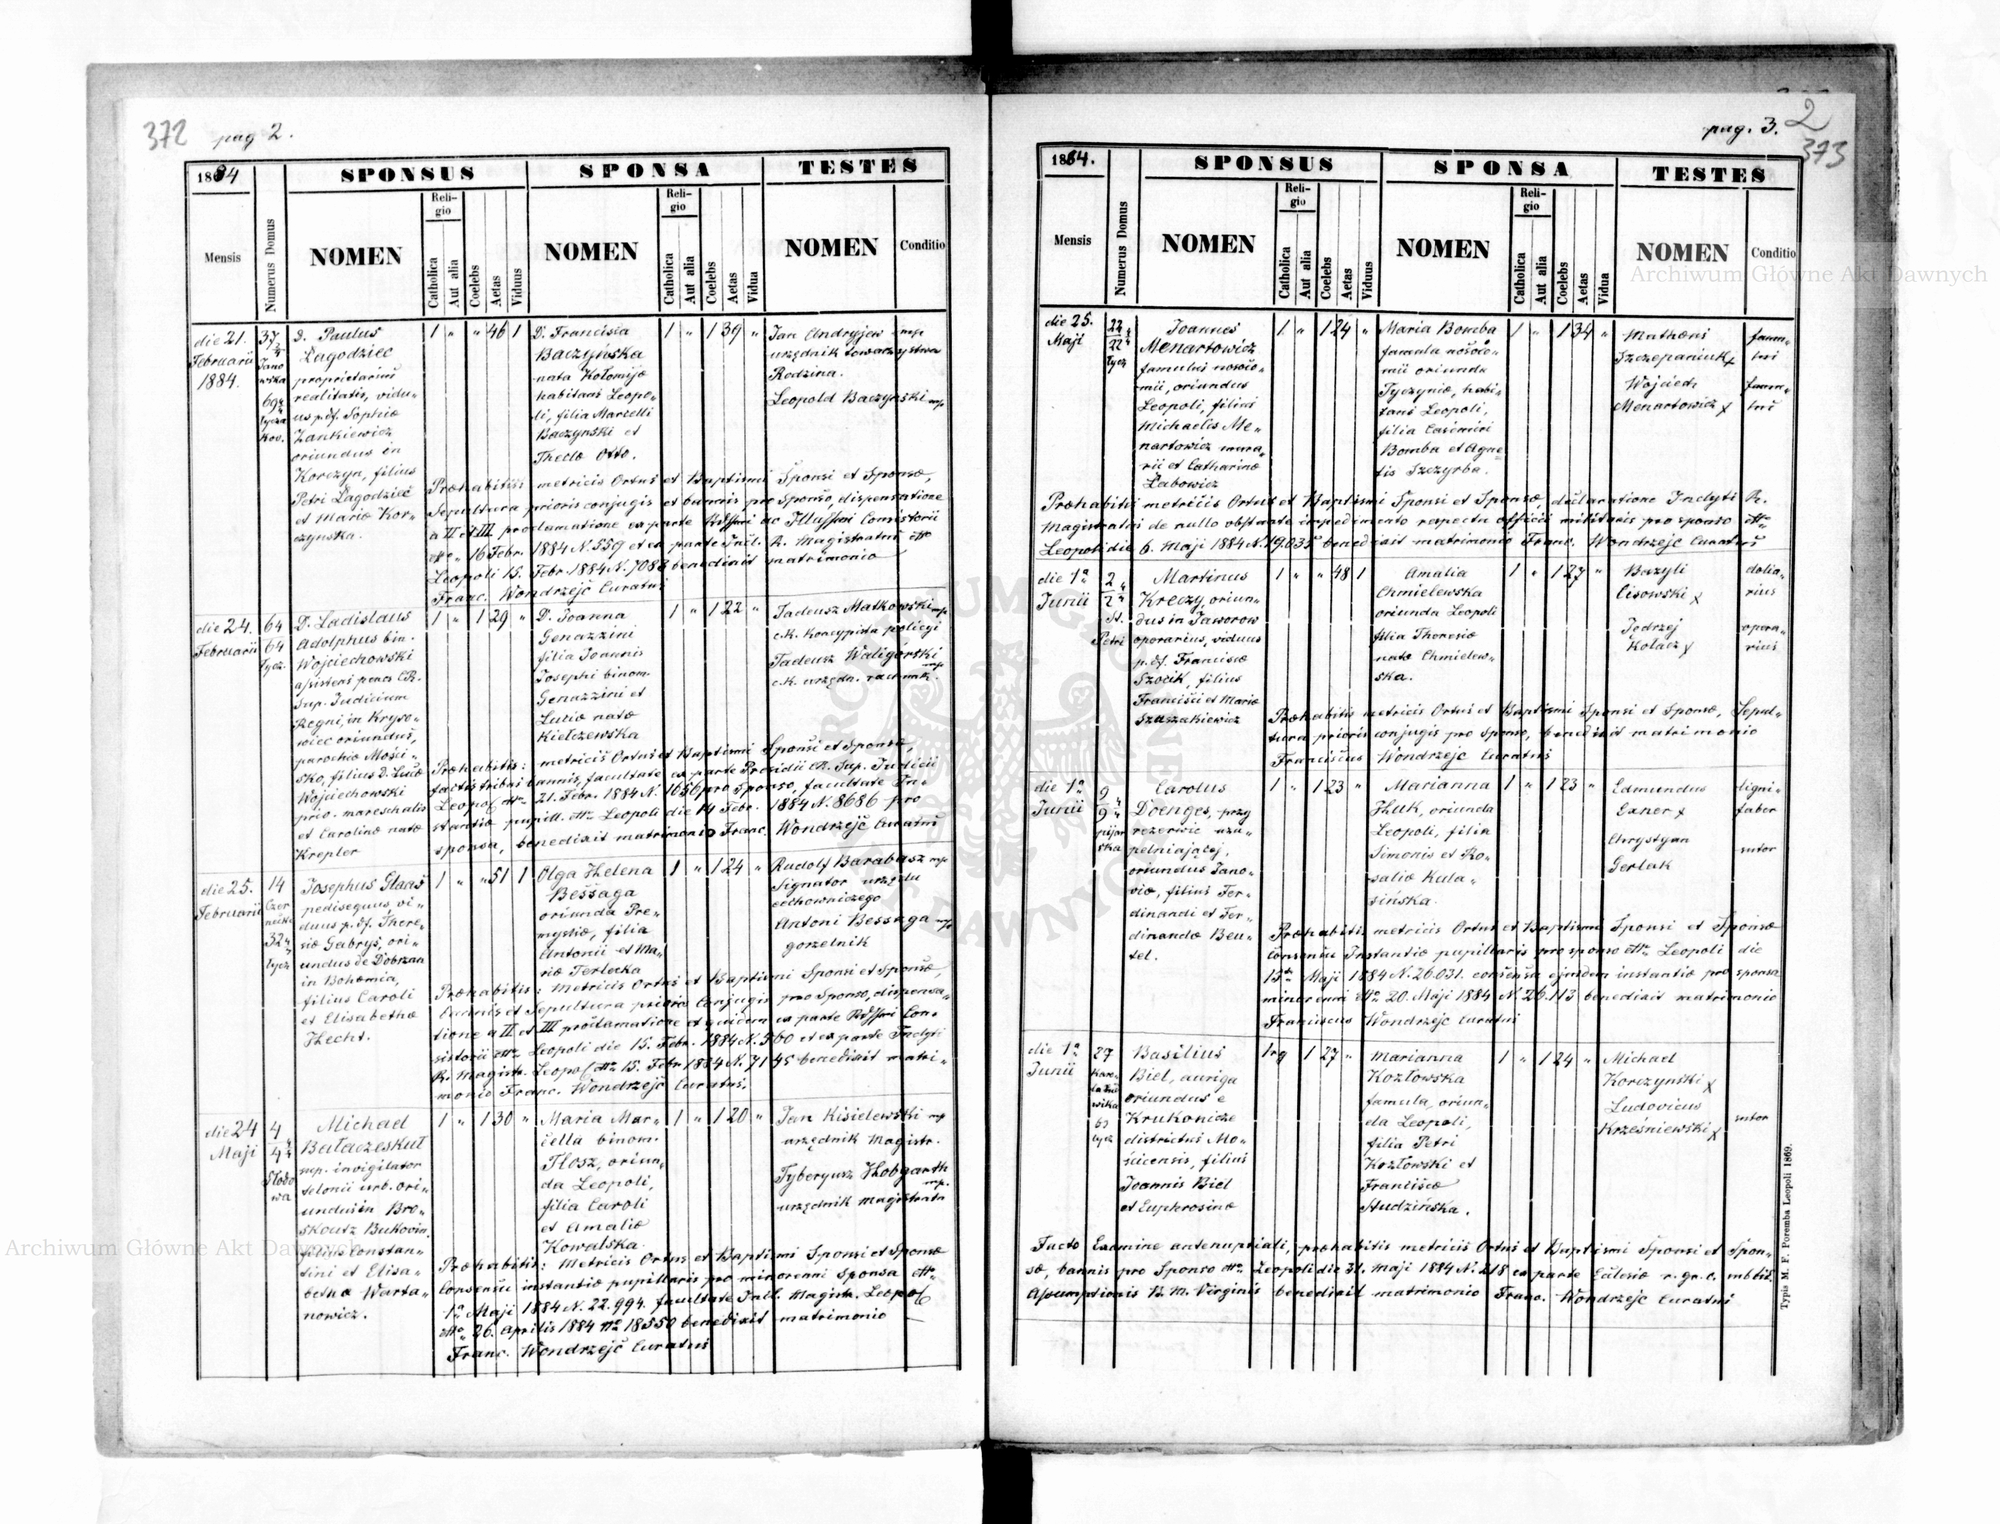 372 pag 2.
1884
SPONSUS
SPONSA
TESTES
Mensis
Numerus Domus
NOMEN
Religio
Catholica
Aut alia
Coelebs
Aetas
Viduus
NOMEN
Religio
Catholica
Aut alia
Coelebs
Aetas
Vidua
NOMEN
Conditio
die 21.
Februarii
1884.
D. Paulus
Łagodziec
proprietarius
realitatis, vidu-
us p. df. Sophiæ
Zankiewicz
oriundus in
Korczyn, filius
Petri Łagodzieć
et Mariæ Kor-
czynska.
1 " " 46 1
D. Francisca
Baczyńska
nata Kołomijæ
habitans Leopo-
li, filia Marcelli
Baczynski et
Theclæ Otto.
1 " 1 39 "
Jan Andryjew mp
urzędnik towarzystwa
Rodzina.
Leopold Baczynski mp
Præhabitis metricis Ortus et Baptismi Sponsi et Sponsæ,
Sepultura prioris conjugis et bannis pro Sponso, dispensatione
a II et III proclamatione ex parte Consistorii
16 Febr. 1884 N. 559 et ex parte Incl. R. Magistratus
Leopoli 15. Febr. 1884 N. 7083 benedixit matrimonio
Franc. Wondrzejć Curatus
die 24.
Februarii
64
64
Łycz.
D. Ladislaus
Adolphus bin.
Wojciechowski
assistens penes C.R.
Sup. Judicium
Regni, in Kryso-
wiec oriundus,
parochiæ Mości-
sko, filius D. Lucæ
Wojciechowski
prov. mareschalis
et Carolinæ natæ
Krepler
1 " 1 29 "
D. Joanna
Genazzini
filia Joannis
Josephi binom.
Genazzini et
Luciæ natæ
Kiełczewska
1 " 1 22 "
Tadeusz Matkowski mp.
c.k. koncypista policyi
Tadeusz Waligórski mp.
c.k. urzędn. rachunk.
Præhabitis: metricis Ortus et Baptismi Sponsi et Sponsæ,
factis tribus bannis, facultate ex parte Præsidii C.R. Sup. Judicii
Leopol. 21. Febr. 1884 N. 1656 pro Sponso, facultate In-
stantiæ pupill. Leopoli die 14 Febr. 1884 N. 8686 pro
sponsa, benedixit matrimonio Franc. Wondrzejć Curatus
die 25.
Februarii
14
32
Łycz
Josephus Glaas
pedisequus vi-
duus p. df. There-
siæ Gabryś, ori-
undus de Dobrzan
in Bohæmia,
filius Caroli
et Elisabethæ
Hecht.
1 " " 51 1
Olga Helena
Bessaga
oriunda Pre-
mysliæ, filia
Antonii et Ma-
riæ Terlecka
1 " 1 24 "
Rudolf Barabasz mp
Signator urzędu
cechowniczego
Antoni Bessaga mp
gorzelnik
Præhabitis: Metricis Ortus et Baptismi Sponsi et Sponsæ,
bannis et Sepultura prioris Conjugis pro Sponso, dispensa-
tione a II et III proclamatione et quidem ex parte Con-
sistorii Leopoli die 15. Febr. 1884 N. 560 et ex parte Inclyti
R. Magistr. Leopol. 15. Febr. 1884 N. 7145 benedixit matri-
monio Franc. Wondrzejć Curatus.
die 24
Maji
4
4
Michael
Bałaczeskuł
sup. invigilator
telonii urb. ori-
undus in Bro-
skoutz Bukovin.
filius Constan-
tini et Elisa-
bethæ Warta-
nowicz.
1 " 1 30 "
Maria Mar-
cella binom.
Flosz, oriun-
da Leopoli,
filia Caroli
et Amaliæ
Kowalska.
1 " 1 20 "
Jan Kisielewski mp
urzędnik Magistr.
Tyberyusz Hobgarth mp.
urzędnik magistratu
Præhabitis: Metricis Ortus et Baptismi Sponsi et Sponsæ
Consensu instantiæ pupillaris pro minorenni Sponsa
1ª Maji 1884 N. 22.994. facultate Incl. Magistr. Leopol.
26. Aprilis 1884 N° 18550 benedixit matrimonio
Franc. Wondrzejć Curatus
pag. 3. 2
373
1884.
SPONSUS
SPONSA
TESTES
Mensis
Numerus Domus
NOMEN
Religio
Catholica
Aut alia
Coelebs
Aetas
Viduus
NOMEN
Religio
Catholica
Aut alia
Coelebs
Aetas
Vidua
NOMEN
Conditio
die 25.
Maji
22
22
Łycz
Joannes
Menartowicz
famulus nosoco-
mii, oriundus
Leopoli, filius
Michaelis Me-
nartowicz mura-
rii et Catharinæ
Łabowicz
1 " 1 24 "
Maria Bomba
famula nosoco-
mii oriunda
Tyczyniæ, habi-
tans Leopoli,
filia Casimiri
Bomba et Agne-
tis Szczyrba.
1 " 1 34 "
Mathæus
Szczepaniuk x
Wojciech
Menartowicz x
famu-
lus
famu-
lus
Præhabitis metricis Ortus et Baptismi Sponsi et Sponsæ, declaratione Inclyti R.
Magistratus de nullo obstante impedimento respectu officii militaris pro sponso
Leopoli die 6. Maji 1884 N. 19.035 benedixit matrimonio Franc. Wondrzejć Curatus
die 1ª
Junii
2
2
St.
Petri
Martinus
Kreczy, oriun-
dus in Jaworow
operarius, viduus
p. df. Franciscæ
Szocik, filius
Francisci et Mariæ
Szuszakiewicz
1 " " 48 1
Amalia
Chmielewska
oriunda Leopoli
filia Theresiæ
natæ Chmielew-
ska.
1 " 1 27 "
Bazyli
Cisowski x
Jędrzej
Kołacz x
dolia-
rius
opera-
rius
Præhabitis metricis Ortus et Baptismi Sponsi et Sponsæ, Sepul-
tura prioris conjugis pro Sponso, benedixit matrimonio
Franciscus Wondrzejć Curatus
die 1ª
Junii
9
9
pijar
ska
Carolus
Doenges, przy
rezerwie uzu-
pełniającej,
oriundus Jano-
viæ, filius Fer-
dinandi et Fer-
dinandæ Beu-
tel.
1 " 1 23 "
Marianna
Huk, oriunda
Leopoli, filia
Simonis et Ro-
saliæ Kula-
sińska.
1 " 1 23 "
Edmundus
Exner x
Chrystyan
Gerlak
ligni-
faber
sutor
Præhabitis metricis Ortus et Baptismi Sponsi et Sponsæ
Consensu Instantiæ pupillaris pro sponso Leopoli die
15 Maji 1884 N. 26.031. consensu ejusdem instantiæ pro sponsa
minorenni 20. Maji 1884 N. 26.113 benedixit matrimonio
Franciscus Wondrzejć Curatus
die 1ª
Junii
27
Łycz
Basilius
Biel, auriga
oriundus e
Krukonicze
districtus Mo-
scicensis, filius
Joannis Biel
et Euphrosinæ
1 27 "
Marianna
Kozłowska
famula, oriun-
da Leopoli,
filia Petri
Kozłowski et
Franciscæ
Studzińska.
1 " 1 24 "
Michael
Korczynski x
Ludovicus
Krześniewski x
sutor
Facto Examine antenuptiali, præhabitis metricis Ortus et Baptismi Sponsi et Spon-
sæ, bannis pro Sponso Leopoli die 31. Maji 1884 N. 218 ex parte Eclesiæ r. gr. c.
Assumptionis B. M. Virginis benedixit matrimonio Franc. Wondrzejć Curatus
Typis M. F. Poremba Leopoli 1869.
Archiwum Główne Akt Dawnych
Archiwum Główne Akt Dawnych